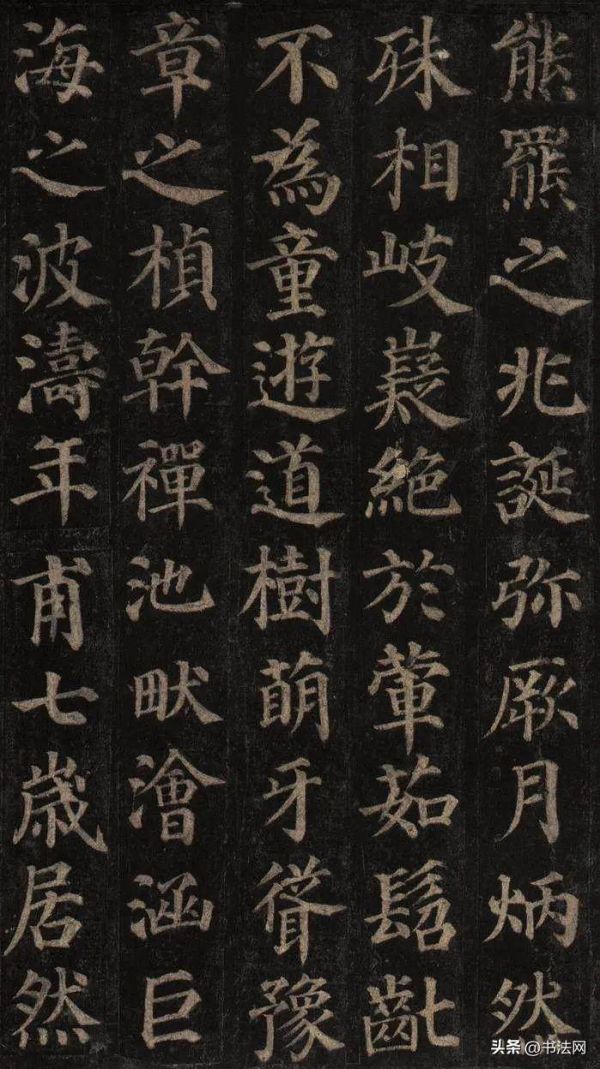 熊羆之兆誕弥厥月炳然
殊相岐嶷絕於葷茹髫齔
不為童遊道樹萌牙聳豫
章之楨幹禪池畎澮涵巨
海之波濤年甫七歲居然
头条@书法网